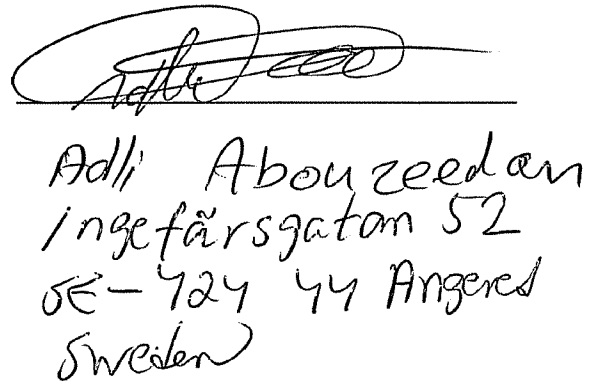 Adli Abouzeedan
Ingefärsgatan 52
SE-424 44 Angered
Sweden